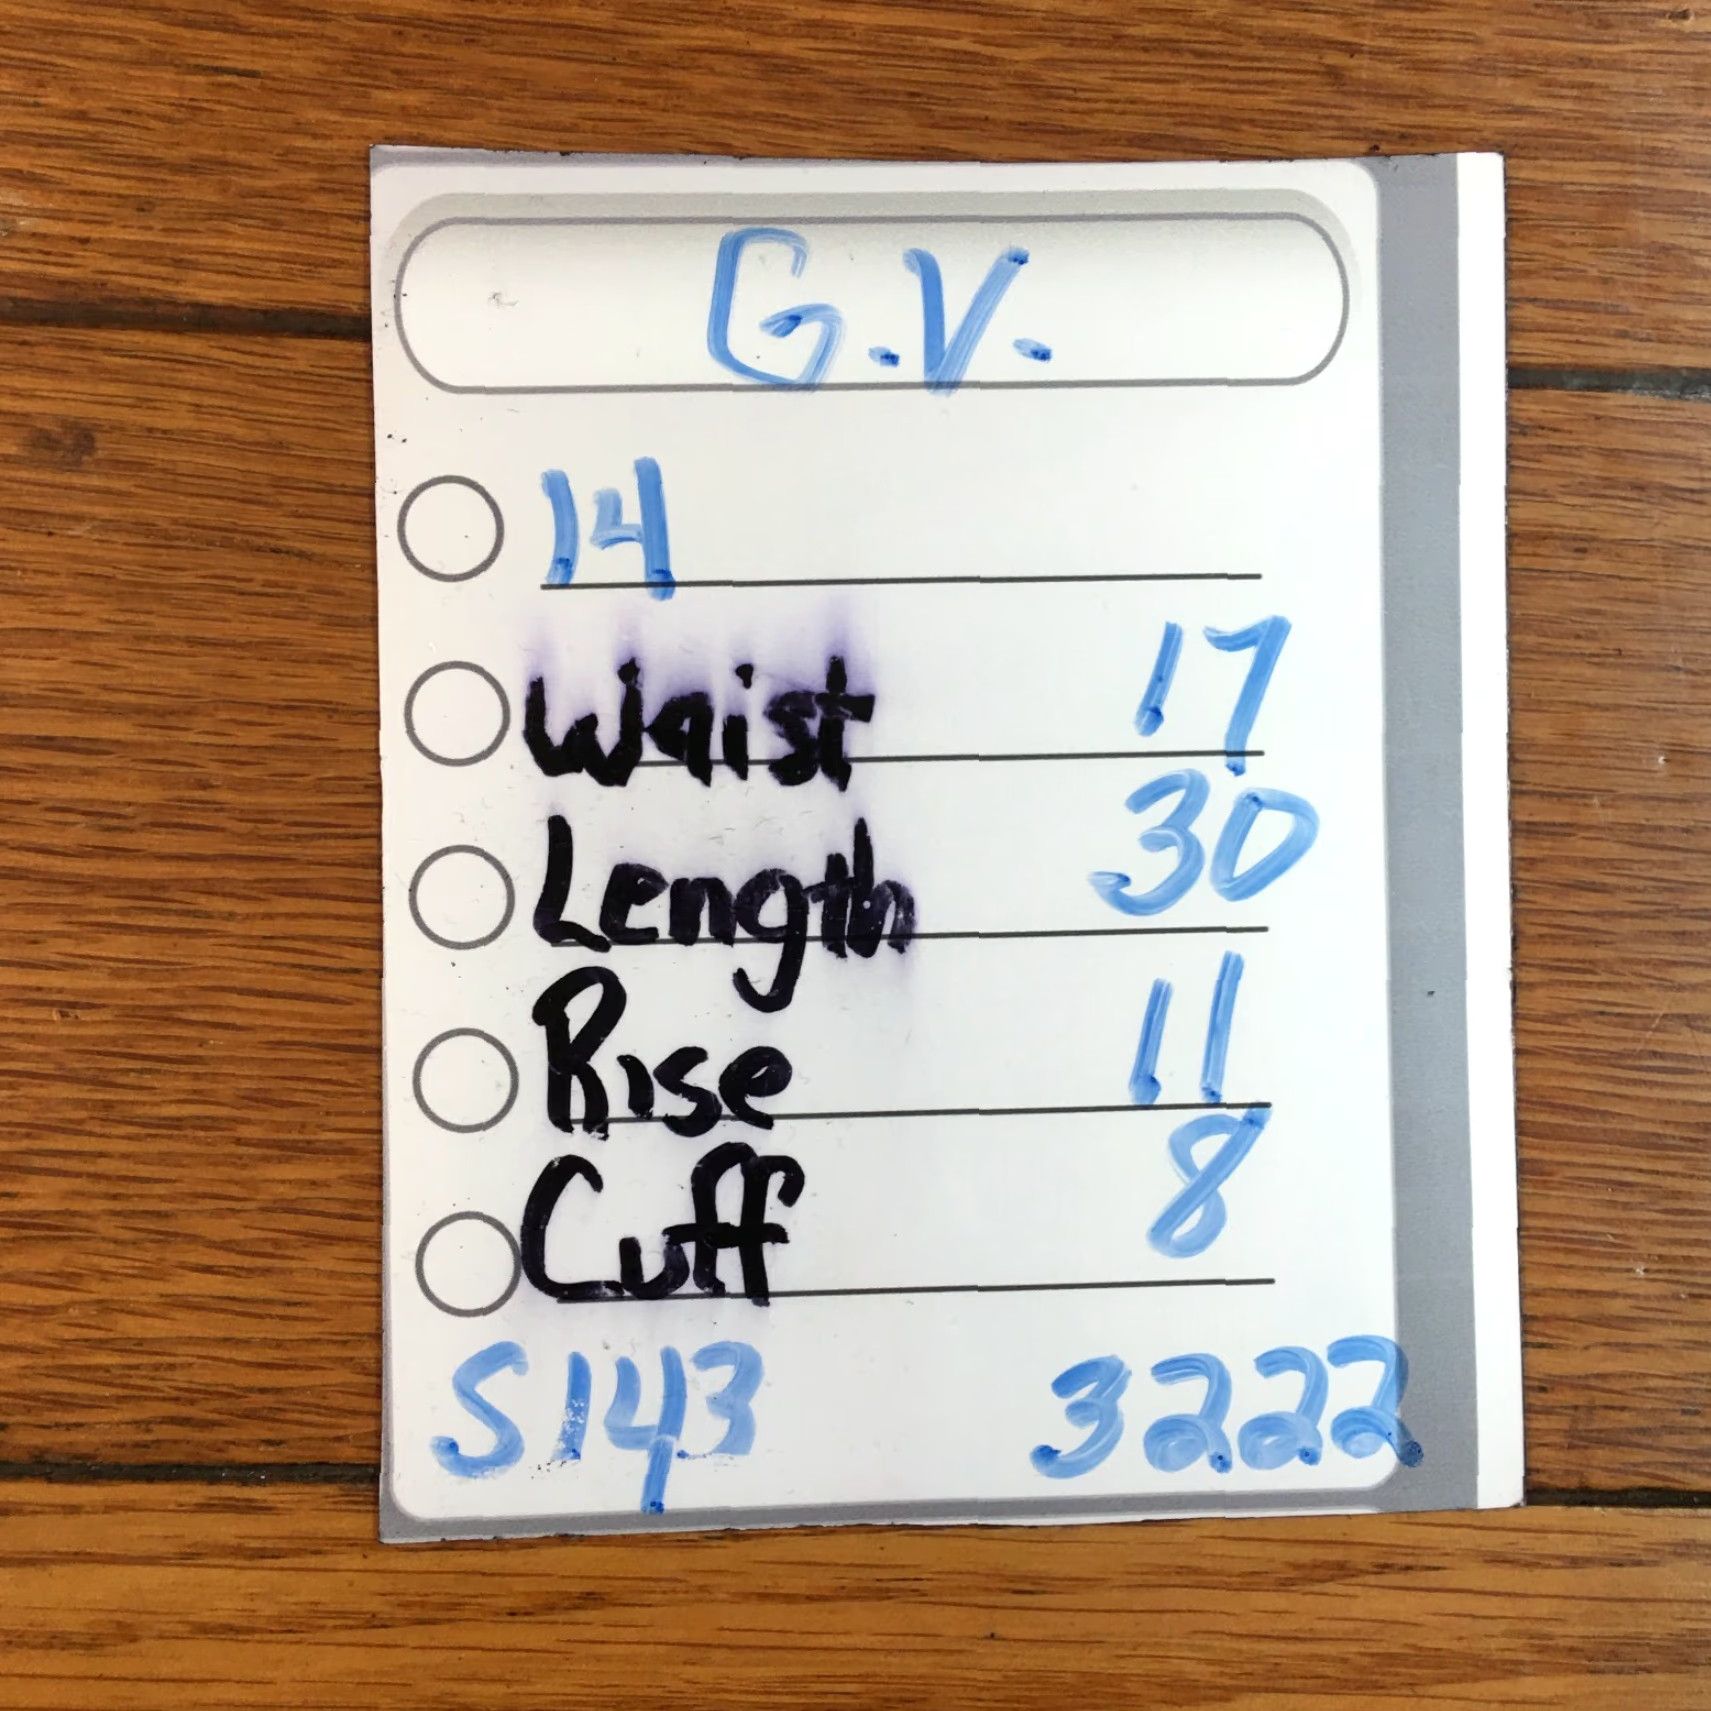 G.V.
14
Waist 17
Length 30
Rise 11
Cuff 8
S143 3222